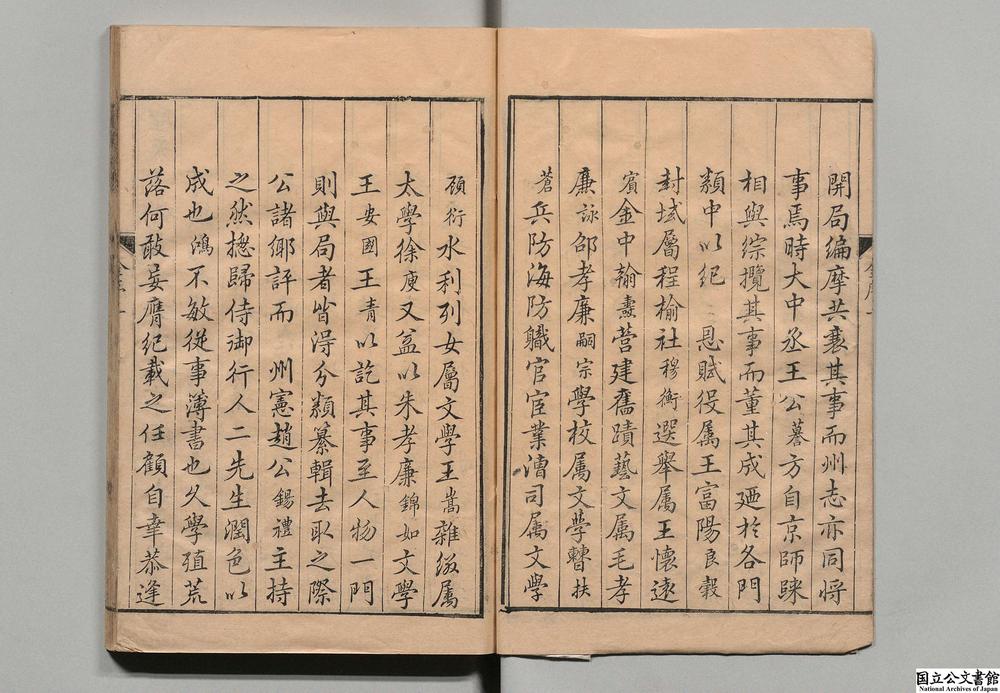 開局編摩共襄其事而州志亦同將
事焉時大中丞王公摹方自京師睐
相與綜攬其事而董其成廼於各門
類中以紀 恩賦役属王富陽良穀
封域屬程榆社穆衡選舉属王懷遠
賓金中翰燾營建舊蹟藝文属毛孝
廉詠邵孝廉嗣宗學校属文學瞽扶
蒼兵防海防職官宦業漕司属文學
顧衍水利列女屬文學王嵩雜綴属
太學徐庾又益以朱孝廉錦如文學
王安國王青以訖其事至人物一門
則與局者皆淂分類纂輯去取之際
公諸鄉評而 州憲趙公錫禮主持
之然摠歸侍御行人二先生潤色以
成也鴻不敏從事簿書也久學殖荒
落何敢妄膺紀載之任顧自幸恭逢
国立公文書館
National Archives of Japan